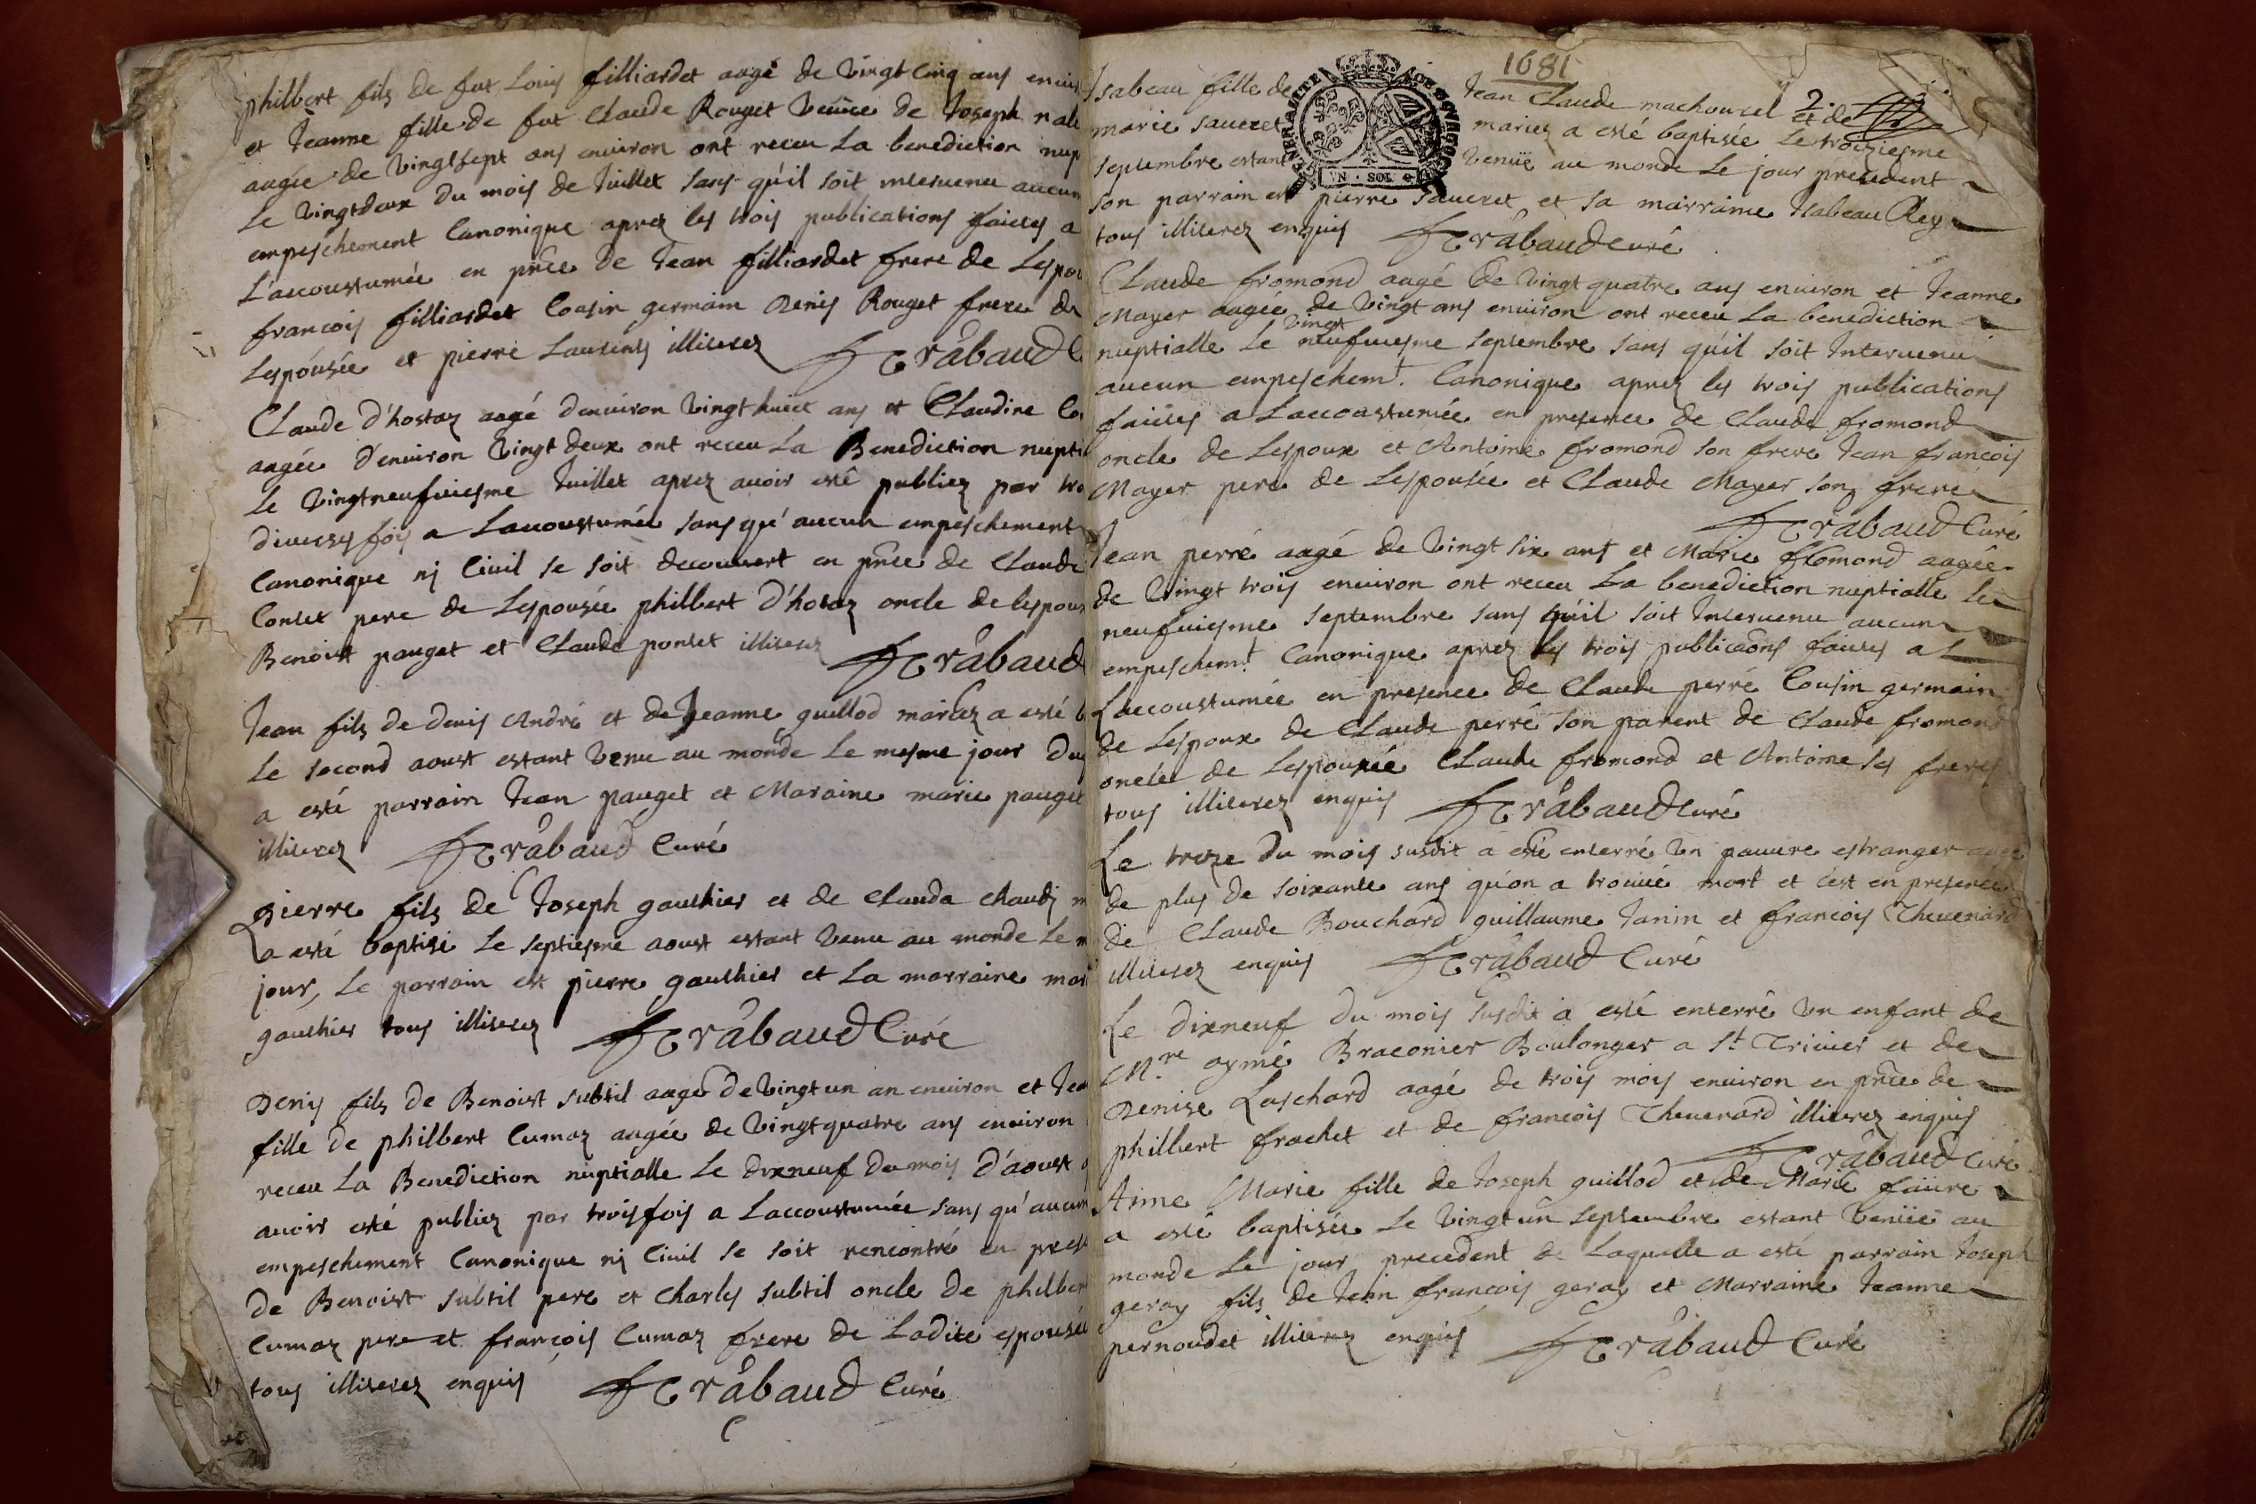 philbert fils de fut Louis filliardet aagé de vingt cinq ans envir
et Jeanne fille de fut Claude Rouget veuue de Joseph nale
aagée de vingtsept ans enuiron ont receu La benediction nup
Le vingtdeux du mois de Juillet sans qu'il soit interuenu aucun
empeschement Canonique aprez les trois publications faictes a
L'accoustumée en pnce de Jean filliardet frere de Lespou
francois filliardet Cousin germain Denis Rouget frere de
Lespousée et pierre Laurens illiterez rabaud C
Claude d'hostaz aagé d'enuiron vingt huict ans et Claudine Co
aagée d'enuiron vingt deux ont receu La Benediction nupti
Le vingtneufuiesme Juillet aprez auoir esté publiez par tro
diuerses fois a Laccoustumée sans qu'aucun empeschement
Canonique nj Ciuil se soit decouuert en pnce de Claude
Contet pere de Lespousée philbert d'hotaz oncle de lespous
Benoist pauget et Claude pontet illiterez rabaud
Jean fils de denis André et de Jeanne guillod mariez a esté b
Le second aoust estant venu au monde Le mesme jour du
a esté parrain Jean pauget et Maraine marie pauget
illiterez rabaud Curé
pierre fils de Joseph gauthier et de Clauda chaudj m
a esté baptisé Le septiesme aoust estant venu au monde Le m
jour, Le parrain est pierre gauthier et La marraine mar
gauthier tous illiterez rabaud Curé
Denis fils de Benoist subtil aagé de vingt un an enuiron et Jea
fille de philbert Cumaz aagée de vingtquatre ans enuiron
receu La Benediction nuptialle Le dixneuf du mois d'aoust
auoir esté publiez par trois fois a Laccoustumée sans qu'aucun
empeschement Canonique nj Ciuil se soit rencontré en prese
de Benoist subtil pere et Charles subtil oncle de philbert
Cumaz pere et françois Cumaz frere de Ladite espousée
tous illiterez enquis rabaud Curé
1681
2.
Isabeau fille de Jean Claude machourel et de
marie saueret mariez a esté baptisée Le troiziesme
septembre estant venüe au monde Le jour précedent
son parrain est pierre saueret et sa mairraine Isabeau Rey
tous illiterez enquis rabaud Curé
VN · SOL
Claude fromond aagé de vingt quatre ans enuiron et Jeanne
Mayer aagée de vingt ans enuiron ont receu La benediction
vingt
nuptialle Le neufuiesme septembre sans qu'il soit Interuenu
aucun empeschemt. Canonique aprez les trois publications
faictes a Laccoustumée en presence de Claude fromond
oncle de Lespoux et Antoine fromond son frere Jean francois
Mayer pere de Lespousée et Claude Mayer son frere
rabaud Curé
Jean perré aagé de vingt six ans et Marie fromond aagée
de vingt trois enuiron ont receu La benediction nuptialle Le
neufuiesme septembre sans qu'il soit Interuenu aucun
empeschemt. Canonique aprez les trois publicaons faictes a
Laccoustumée en presence de Claude perré Cousin germain
de Lespoux de Claude perré son parent de Claude fromond
oncle de Lespousée Claude fromond et Antoine ses freres
tous illiterez enquis rabaud Curé
Le treze du mois susdit a esté enterré vn pauure estranger aagé
de plus de soixante ans qu'on a trouué mort et cest en presence
de Claude Bouchard guillaume Janin et francois Theuenard
illiterez enquis rabaud Curé
Le dixneuf du mois susdit a esté enterré vn enfant de
Mre aymé Braconier Boulanger a St Triuier et de
Denise Laschard aagé de trois mois enuiron en pnce de
philbert frachet et de francois Theuenard illiterez enquis
rabaud Curé
Anne Marie fille de Joseph guillod et de Marie faüre
a esté baptisée Le vingt un septembre estant venüe au
monde Le jour precedent de Laquelle a esté parrain Joseph
geray fils de Jean francois geray et Marraine Jeanne
pernoudet illiterez enquis rabaud Curé